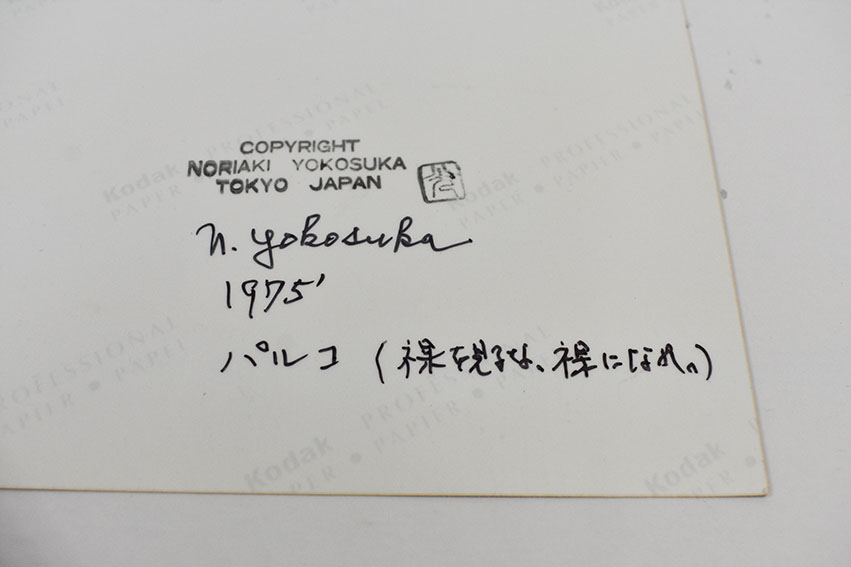 COPYRIGHT
NORIAKI YOKOSUKA
TOKYO JAPAN
n. yokosuka
1975'
パルコ (裸を見るな、裸になれ。)
Kodak PROFESSIONAL
PAPIER • PAPEL
Kodak PROFESSIONAL
PAPER • PAPIER •
PROFESSIONAL
PAPIER •
Kodak PROFESSIONAL
PAPER • PAPIER •
Kodak
PAPER •